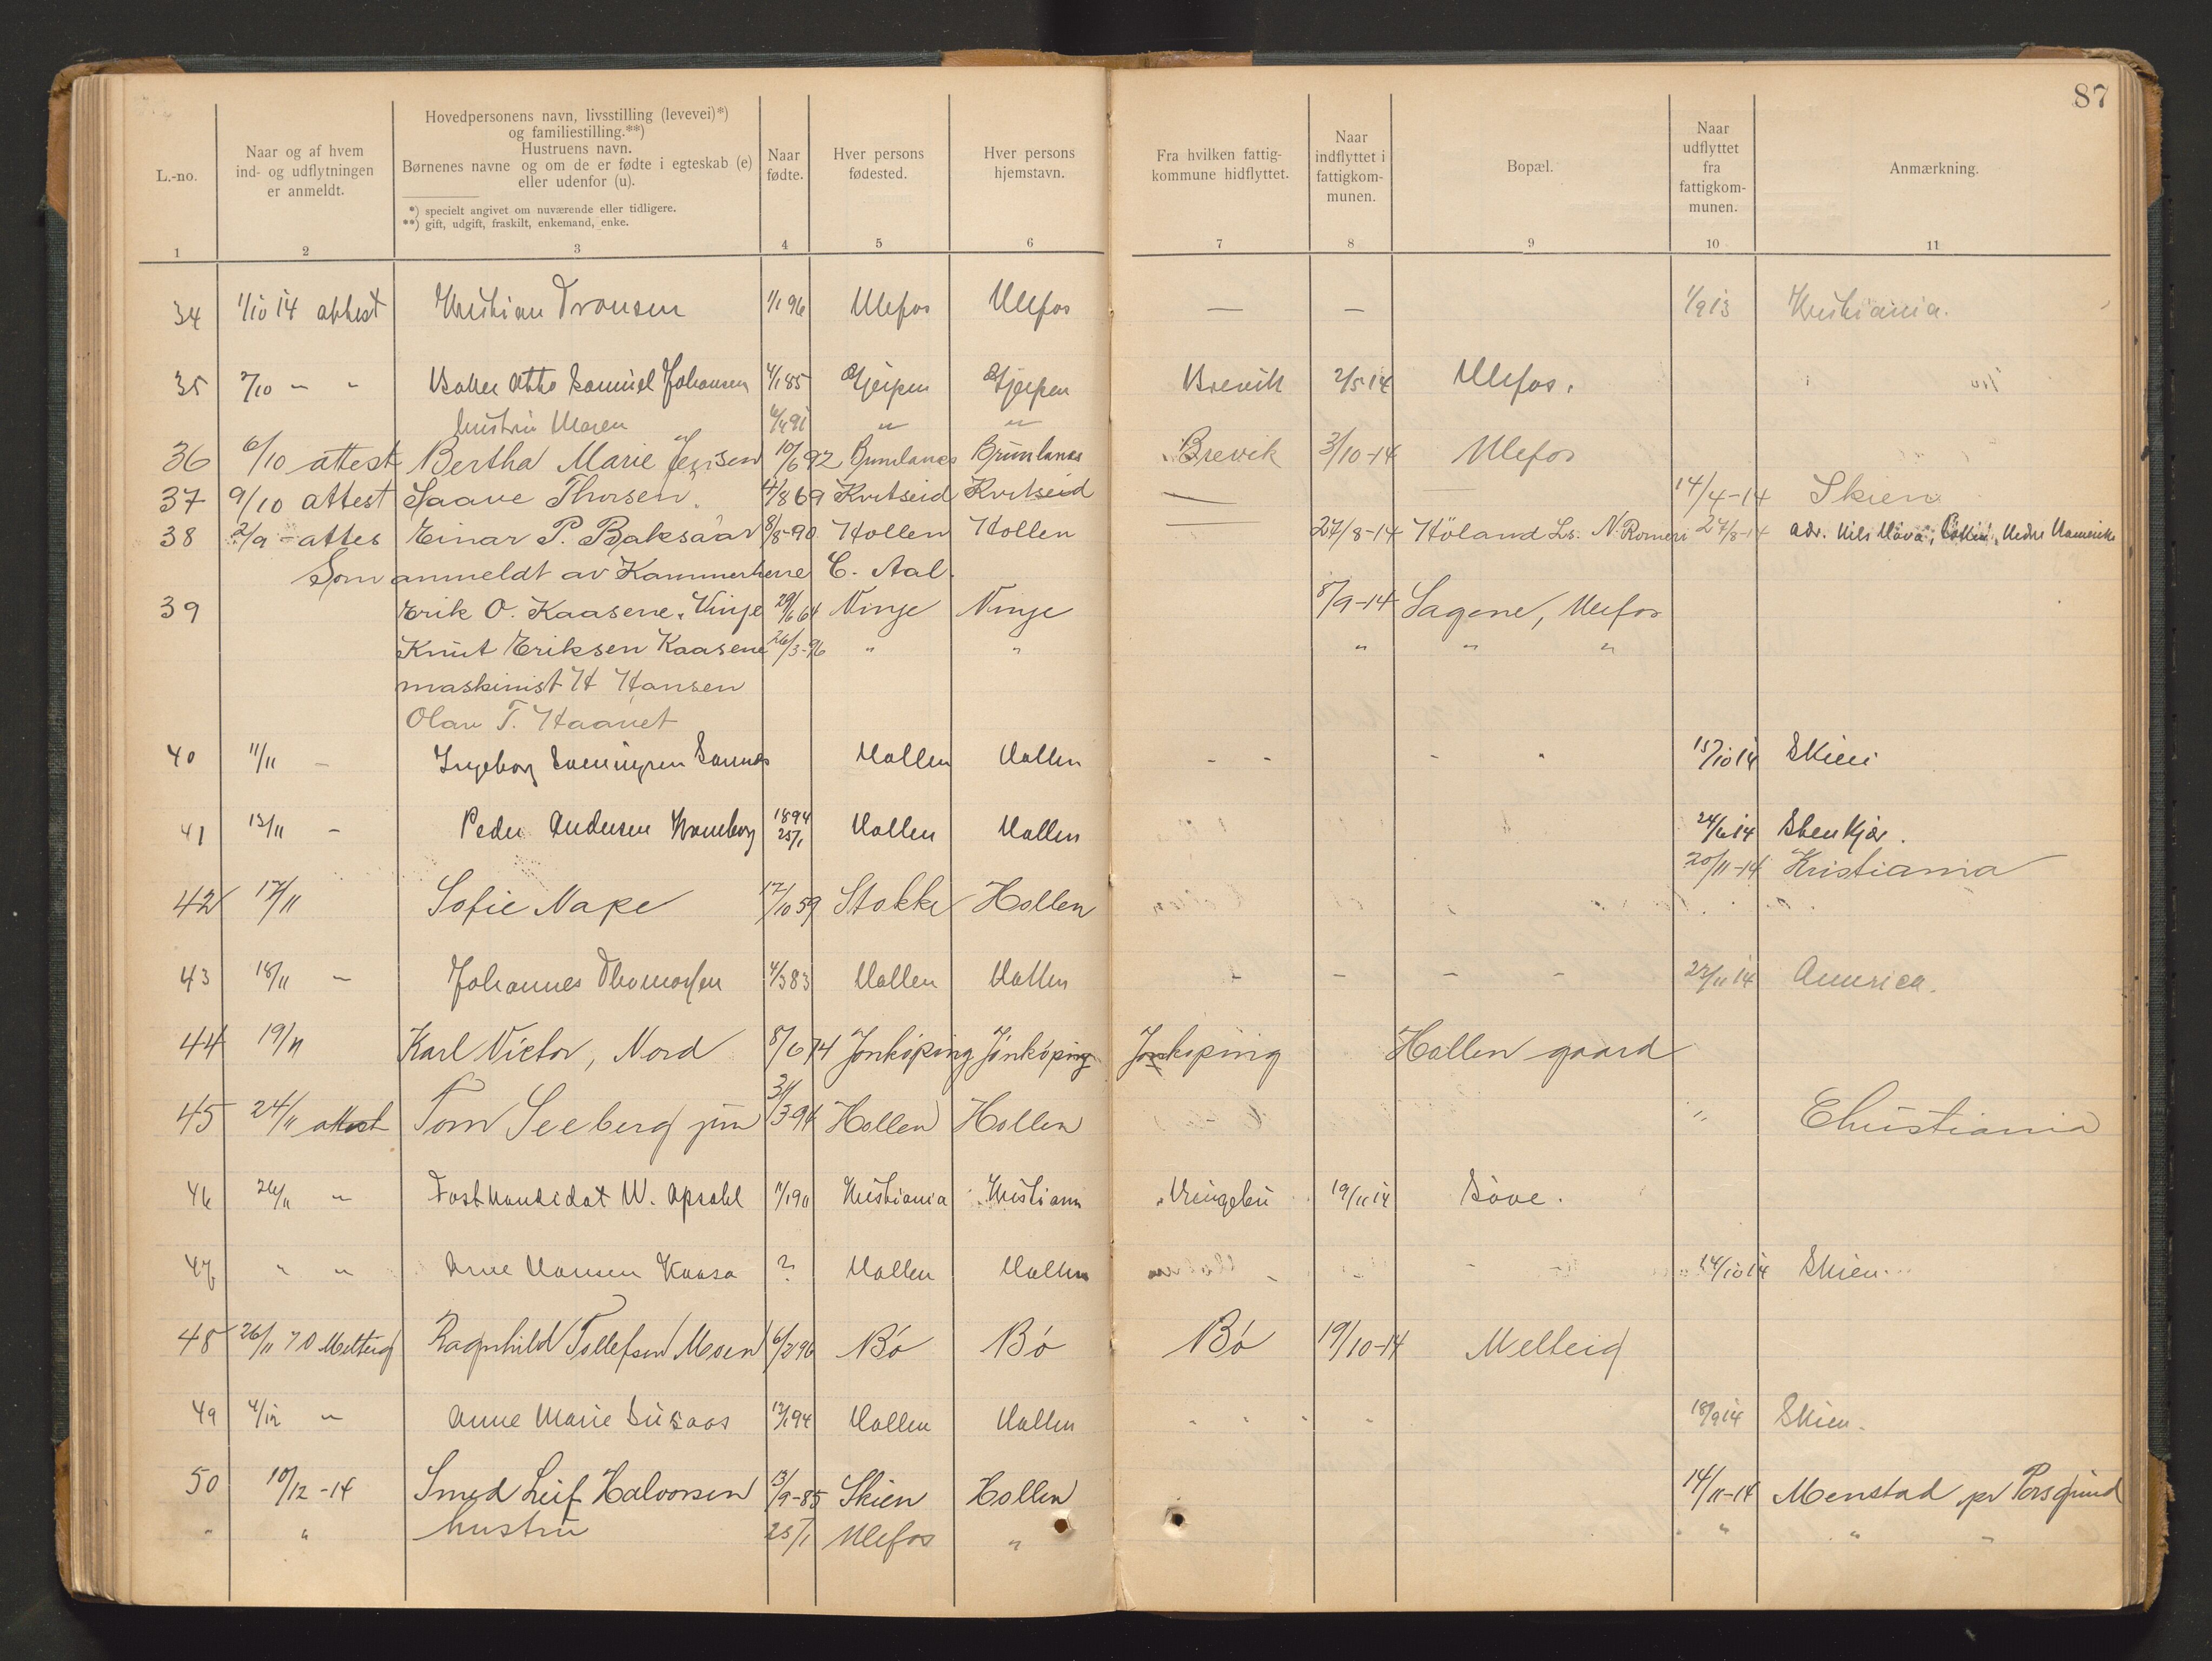 87
L.-no.
Naar og af hvem ind- og udflytningen er anmeldt.
Hovedpersonens navn, livsstilling (levevei)*) og familiestilling.**) Hustruens navn. Børnenes navne og om de er fødte i egteskab (e) eller udenfor (u).
*) specielt angivet om nuværende eller tidligere.
**) gift, udgift, fraskilt, enkemand, enke.
Naar fødte.
Hver persons fødested.
Hver persons hjemstavn.
Fra hvilken fattigkommune hidflyttet.
Naar indflyttet i fattigkommunen.
Bopæl.
Naar udflyttet fra fattigkommunen.
Anmærkning.
1 2 3 4 5 6 7 8 9 10 11
34 1/10 14 attest Kristian Transen 1/1 96 Ulefos Ulefos — — 1/9 13 Kristiania.
35 2/10 " " Otto Samuel Johansen 4/1 85 Gjerpen Gjerpen Brevik 2/5 14 Ulefos.
hustru Maren " "
36 6/10 attest Bertha Marie Jensen 10/6 92 Brunlanes Brunlanes Brevik 3/10-14 Ulefos
37 9/10 attest Saave Thorsen. 4/8 69 Kvitseid Kvitseid — — 14/4-14 Skien
38 2/9 - attes Einar P. Baksaar 8/8-90 Hollen Hollen — 27/8-14 Höland Ls. N. Romeri 27/8-14 adr. Nils
Som anmeldt av Kammerherre C. Aal.
39 Erik O. Kaasene, Vinje 29/6 64 Vinje Vinje 8/9-14 Sagene, Ulefos
Knut Eriksen Kaasene 26/3-96 " " " " "
maskinist H Hansen
Olav T. Haavet
40 11/11 - Ingeborg Sannes Hollen Hollen - - - " 15/10 14 Skien
41 13/11 - Peder Andersen Kroneborg 1894 25/1 Hollen Hollen 24/6 14 Stenkjær.
20/11-14 Kristiania
42 17/11 Sofie Nape 17/10 59 Stokke Hollen
43 18/11 - Johannes Thomassen 4/3 83 Hollen Hollen - - - - 23/11 14 America.
44 19/11 Karl Victor, Nord 8/6 74 Jonköping Jönköping Jonkoping Hollen gaard
45 24/11 attest Tom Seeberg jun 31/3-94 Hollen Hollen " Christiania
46 26/11 " W. Opsahl Kristiania Kristiania Ringebu 19/11 14 Söve.
47 " " Arne Hansen Kaasa ? Hollen Hollen - - - 14/10 14 Skien.
48 26/11 Melteig Ragnhild Tollefsen Moen 6/2 96 Bö Bö Bö 19/10-14 Melteig
49 4/12 " Anne Marie Susaas 12/1 94 Hollen Hollen " " " " 18/9 14 Skien.
50 10/12-14 Smed Leif Halvorsen 13/9-85 Skien Hollen 14/11-14 Menstad pr Porsgrund
" " hustru 25/1 Ulefos " " " " "